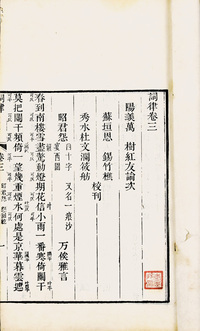 詞律卷三
陽羨萬 樹紅友論次
蘇垣恩 錫竹樵
秀水杜文瀾筱舫 校刊
昭君怨 四十字 又名一痕沙 宴西園 万俟雅言
春到南樓雪盡驚動燈期花信小雨一番寒倚闌干
莫把闌干頻倚一望幾重煙水何處是京華暮雲遮
詞律 卷三